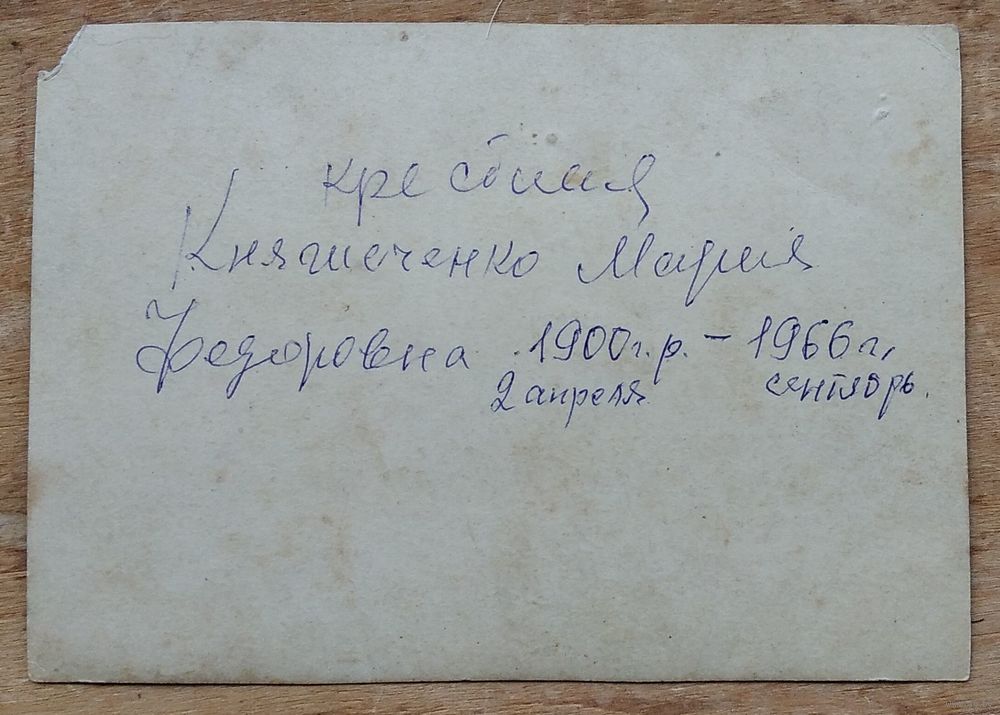 крестная
Мария
Федоровна 1900г.р. – 1966г,
2 апреля сентябрь.